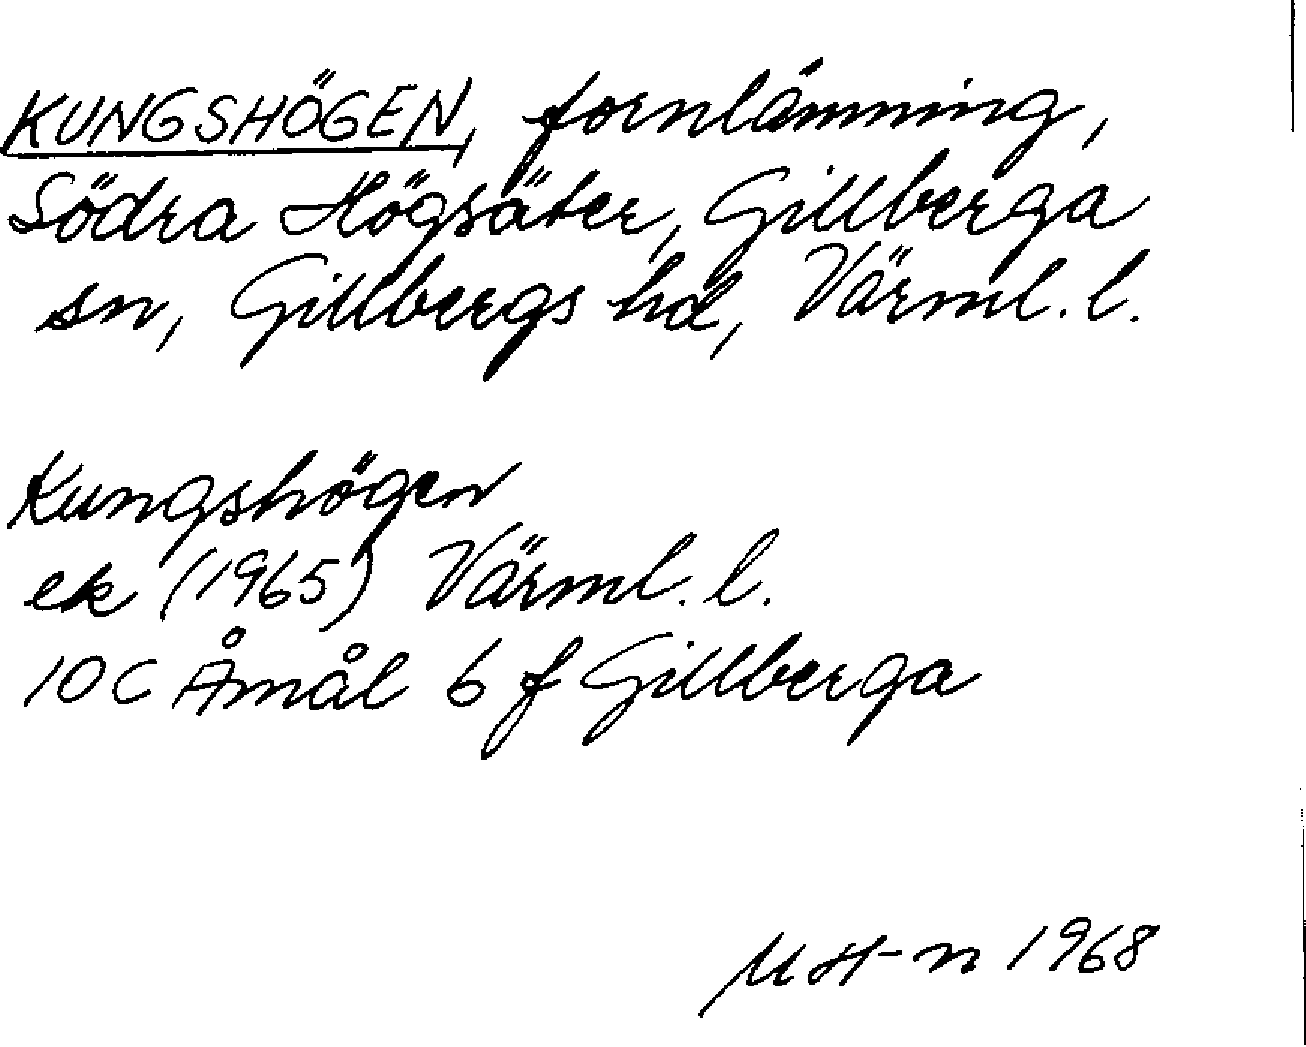 KUNGSHÖGEN, fornlämning,
Södra Högsäter, Gillberga
sn, Gillbergs hd, Värml. l.
Kungshögen
ek (1965) Värml. l.
10 C Åmål 6 f Gillberga
MH-n 1968